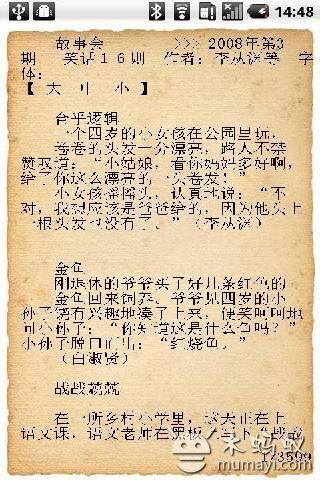 14:48
故事会 >>> 2008年第3
期 笑话16则 作者:李从渊等 字
体:
【 大 中 小 】
合乎逻辑
一个四岁的小女孩在公园里玩,
卷卷的头发十分漂亮,路人不禁
赞叹道:“小姑娘,看你妈妈多好啊,
给了你这么漂亮的一头卷发!”
小女孩摇摇头,认真地说:“不
对,我想应该是爸爸给的,因为他头上
一根头发也没有了。”(李从渊)
金鱼
刚退休的爷爷买了好几条红色的
金鱼回来饲养。爷爷见四岁的小
孙子饶有兴趣地凑了上来,便笑呵呵地
问小孙子:“你知道这是什么鱼吗?”
小孙子脱口而出:“红烧鱼。”
(白淑贤)
战战兢兢
在一所乡村小学里,这天正在上
语文课,语文老师在黑板上写下“战战
1/3599
木蚂蚁
mumayi.com